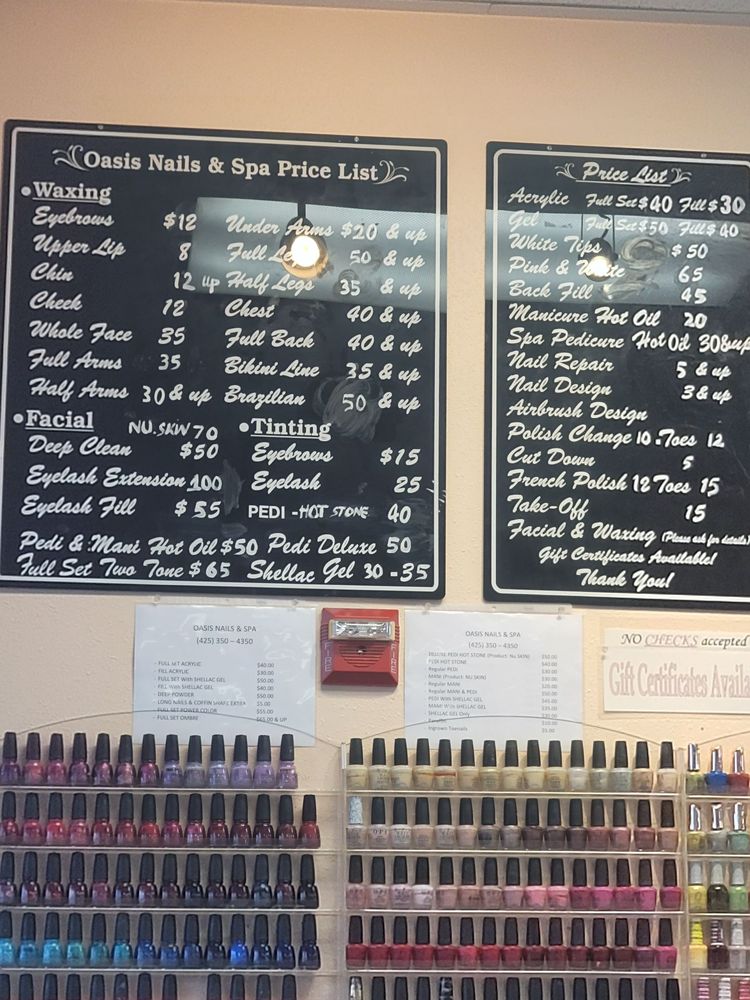 Oasis Nails & Spa Price List
• Waxing
Eyebrows $12
Upper Lip 8
Chin 12 up
Cheek 12
Whole Face 35
Full Arms 35
Half Arms 30 & up
Under Arms $20 & up
Full Legs 50 & up
Half Legs 35 & up
Chest 40 & up
Full Back 40 & up
Bikini Line 35 & up
Brazilian 50 & up
• Facial NU.SKIN 70
Deep Clean $50
Eyelash Extension 100
Eyelash Fill $55
• Tinting
Eyebrows $15
Eyelash 25
PEDI - HOT STONE 40
Pedi & Mani Hot Oil $50 Pedi Deluxe 50
Full Set Two Tone $65 Shellac Gel 30 - 35
Price List
Acrylic Full Set $40 Fill $30
Gel Full Set $50 Fill $40
White Tips $50
Pink & White 65
Back Fill 45
Manicure Hot Oil 20
Spa Pedicure Hot Oil 30&up
Nail Repair 5 & up
Nail Design 3 & up
Airbrush Design
Polish Change 10. Toes 12
Cut Down 5
French Polish 12 Toes 15
Take-Off 15
Facial & Waxing (Please ask for details)
Gift Certificates Available!
Thank You!
OASIS NAILS & SPA
(425) 350 – 4350
- FULL SET ACRYLIC $40.00
- FILL ACRYLIC $30.00
- FULL SET WITH SHELLAC GEL $50.00
- FILL WITH SHELLAC GEL $40.00
- DEEP POWDER $50.00
- LONG NAILS & COFFIN SHAPE EXTRA $5.00
- FULL SET POWER COLOR $55.00
- FULL SET OMBRE $65.00 & UP
FIRE
FIRE
OASIS NAILS & SPA
(425) 350 – 4350
DELUXE PEDI HOT STONE (Product: Nu SKIN) $50.00
PEDI HOT STONE $40.00
Regular PEDI $30.00
MANI (Product: NU SKIN) $30.00
Regular MANI $20.00
Regular MANI & PEDI $50.00
PEDI WITH SHELLAC GEL $45.00
MANI With SHELLAC GEL $35.00
SHELLAC GEL Only
Ingrown Toenails $5.00
NO CHECKS accepted
Gift Certificates Availa